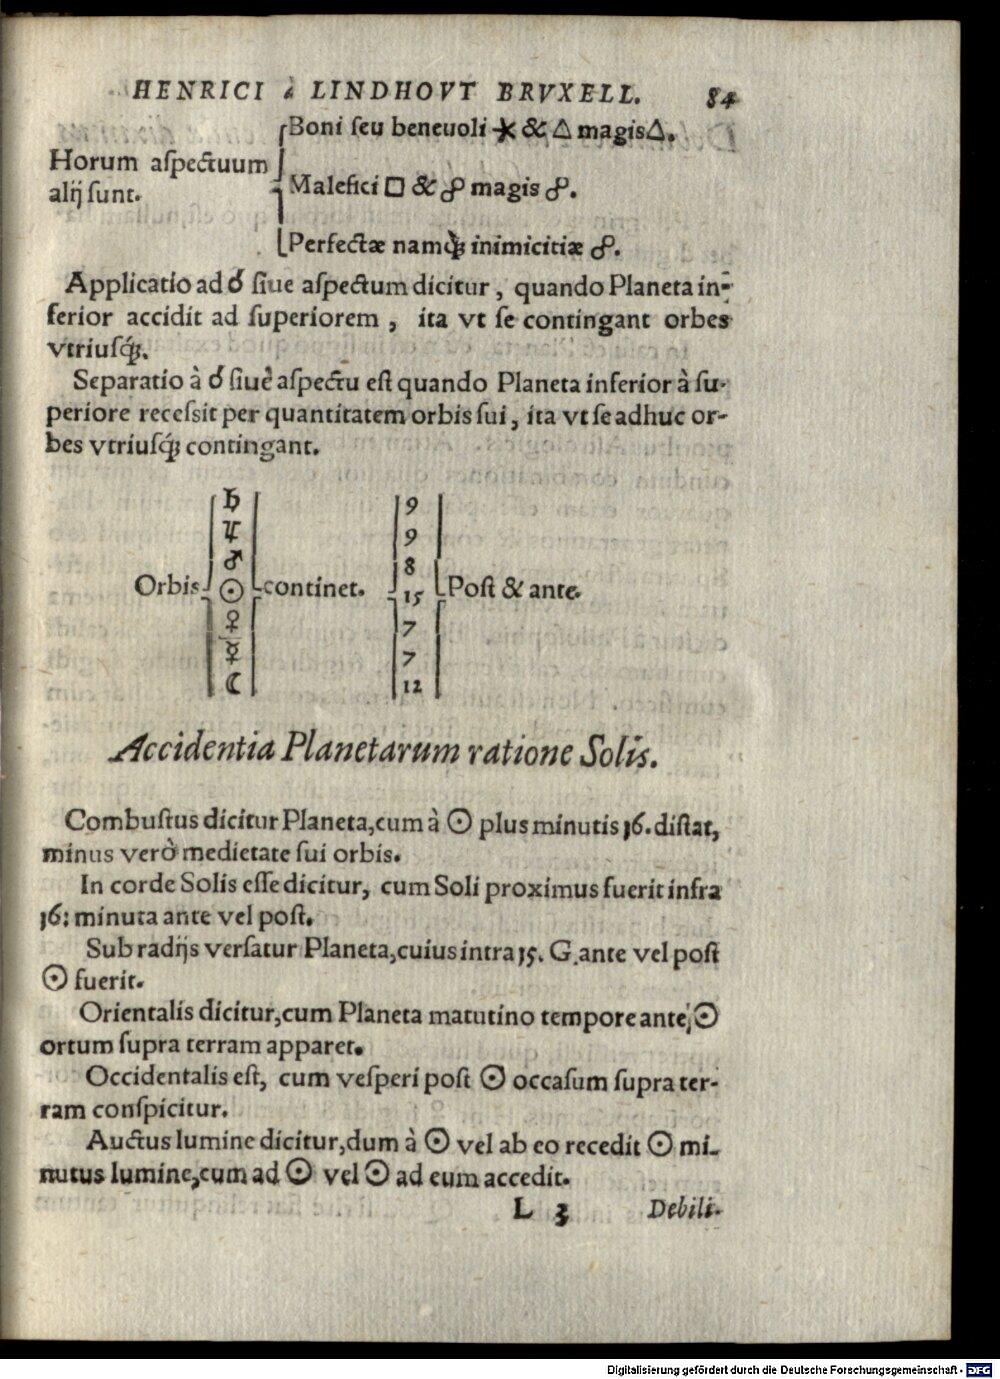 HENRICI à LINDHOVT BRVXELL. 84
Boni ſeu beneuoli ⚹ & △ magis △.
Horum aſpectuum
alij ſunt.
Malefici □ & ☍ magis ☍.
Perfectæ namq́ꝫ inimicitiæ ☍.
Applicatio ad ☌ ſiue aſpectum dicitur, quando Planeta in-
ferior accidit ad ſuperiorem, ita vt ſe contingant orbes
vtriuſq́ꝫ.
Separatio à ☌ ſiue aſpectu eſt quando Planeta inferior à ſu-
periore receſsit per quantitatem orbis ſui, ita vt ſe adhuc or-
bes vtriuſq́ꝫ contingant.
♄ 9
♃ 9
♂ 8
Orbis ☉ continet. 15 Poſt & ante.
♀ 7
☿ 7
☾ 12
Accidentia Planetarum ratione Solis.
Combuſtus dicitur Planeta, cum à ☉ plus minutis 16. diſtat,
minus verò medietate ſui orbis.
In corde Solis eſſe dicitur, cum Soli proximus fuerit infra
16: minuta ante vel poſt.
Sub radijs verſatur Planeta, cuius intra 15. G. ante vel poſt
☉ fuerit.
Orientalis dicitur, cum Planeta matutino tempore ante ☉
ortum ſupra terram apparet.
Occidentalis eſt, cum veſperi poſt ☉ occaſum ſupra ter-
ram conſpicitur.
Auctus lumine dicitur, dum à ☉ vel ab eo recedit ☉ mi-
nutus lumine, cum ad ☉ vel ☉ ad eum accedit.
L 3 Debili-
Digitalisierung gefördert durch die Deutsche Forschungsgemeinschaft - DFG